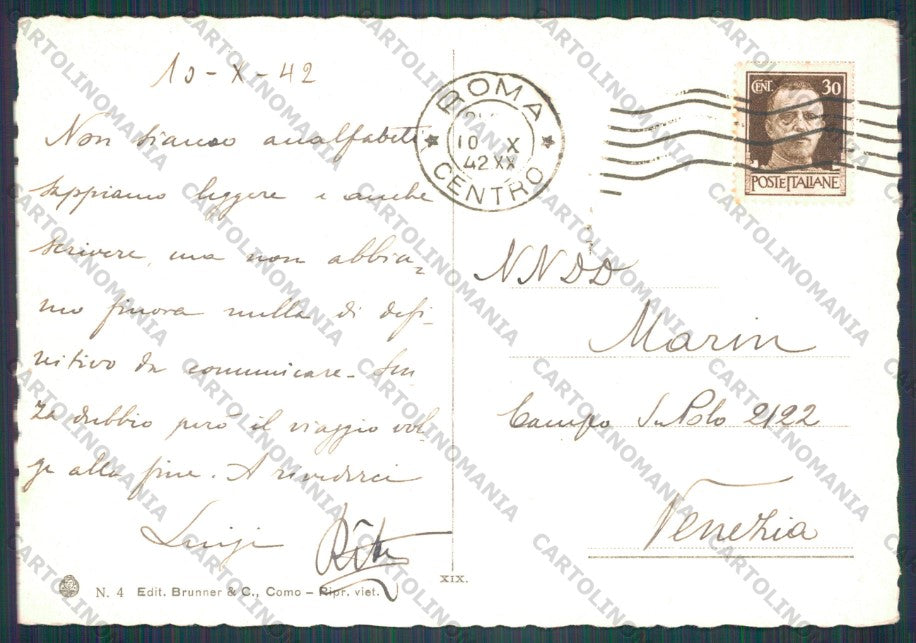 10-X-42
Non siamo analfabeti
sappiamo leggere e anche
scrivere, ma non abbia=
mo finora nulla di defi-
nitivo da comunicare. Sen
za dubbio però il viaggio vol-
ge alla fine. Arivederci
Luigi Rita
ROMA
10 X
42 XX
CENTRO
CENT. 30
POSTE ITALIANE
NNDD
Marin
Campo S. Polo 2122
Venezia
XIX.
N. 4 Edit. Brunner & C., Como – Ripr. viet.
CARTOLINOMANIA